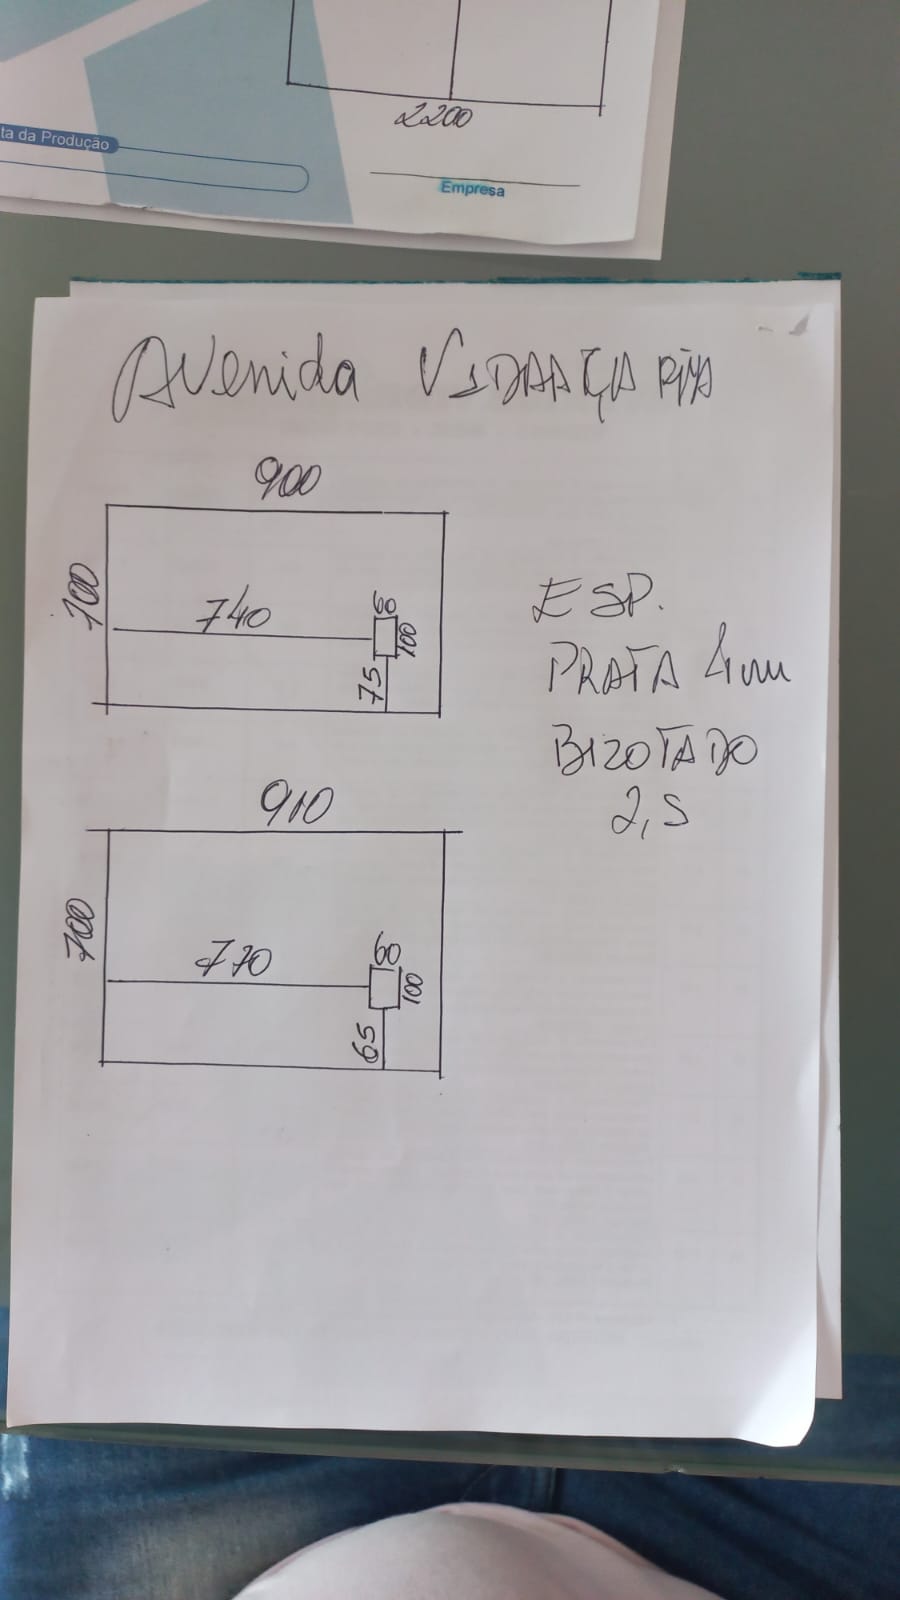 2200
ta da Produção
Empresa
Avenida VIDRAÇARIA
900
700
740
60
100
75
ESP.
PRATA 4mm
BIZOTADO
2,5
910
700
770
60
100
65